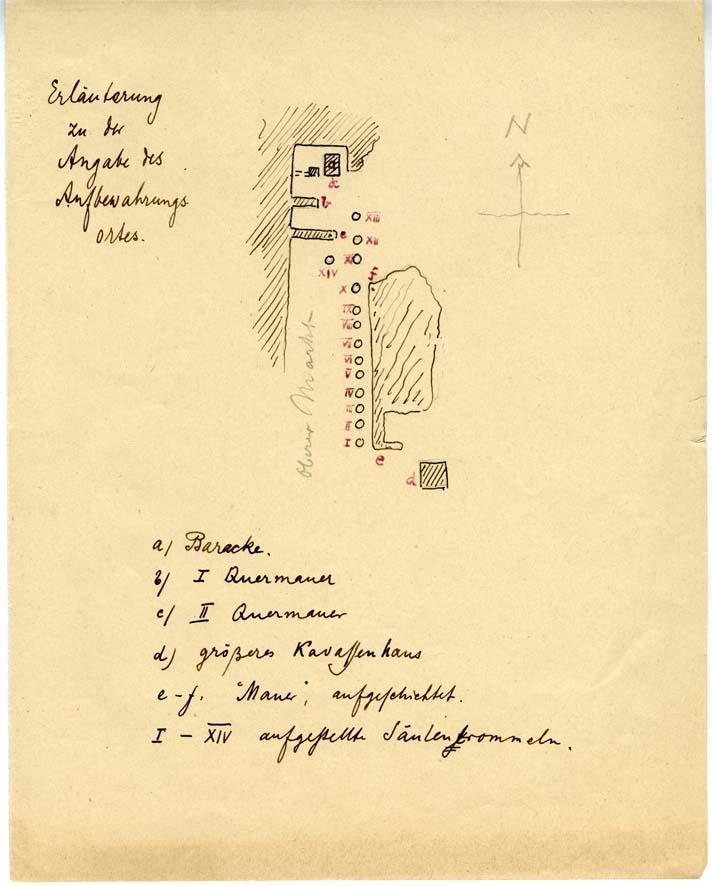 Erläuterung
zu der
Angabe des
Aufbewahrungs
ortes.
N
a
b
c
XIII
XII
XI
XIV
f
X
IX
VIII
VII
VI
V
IV
III
II
I
e
d
Oberer Markt
a) Baracke.
b) I Quermauer
c) II Quermauer
d) größeres Kavassenhaus
e-f. "Mauer", aufgeschichtet.
I - XIV aufgestellte Säulentrommeln.